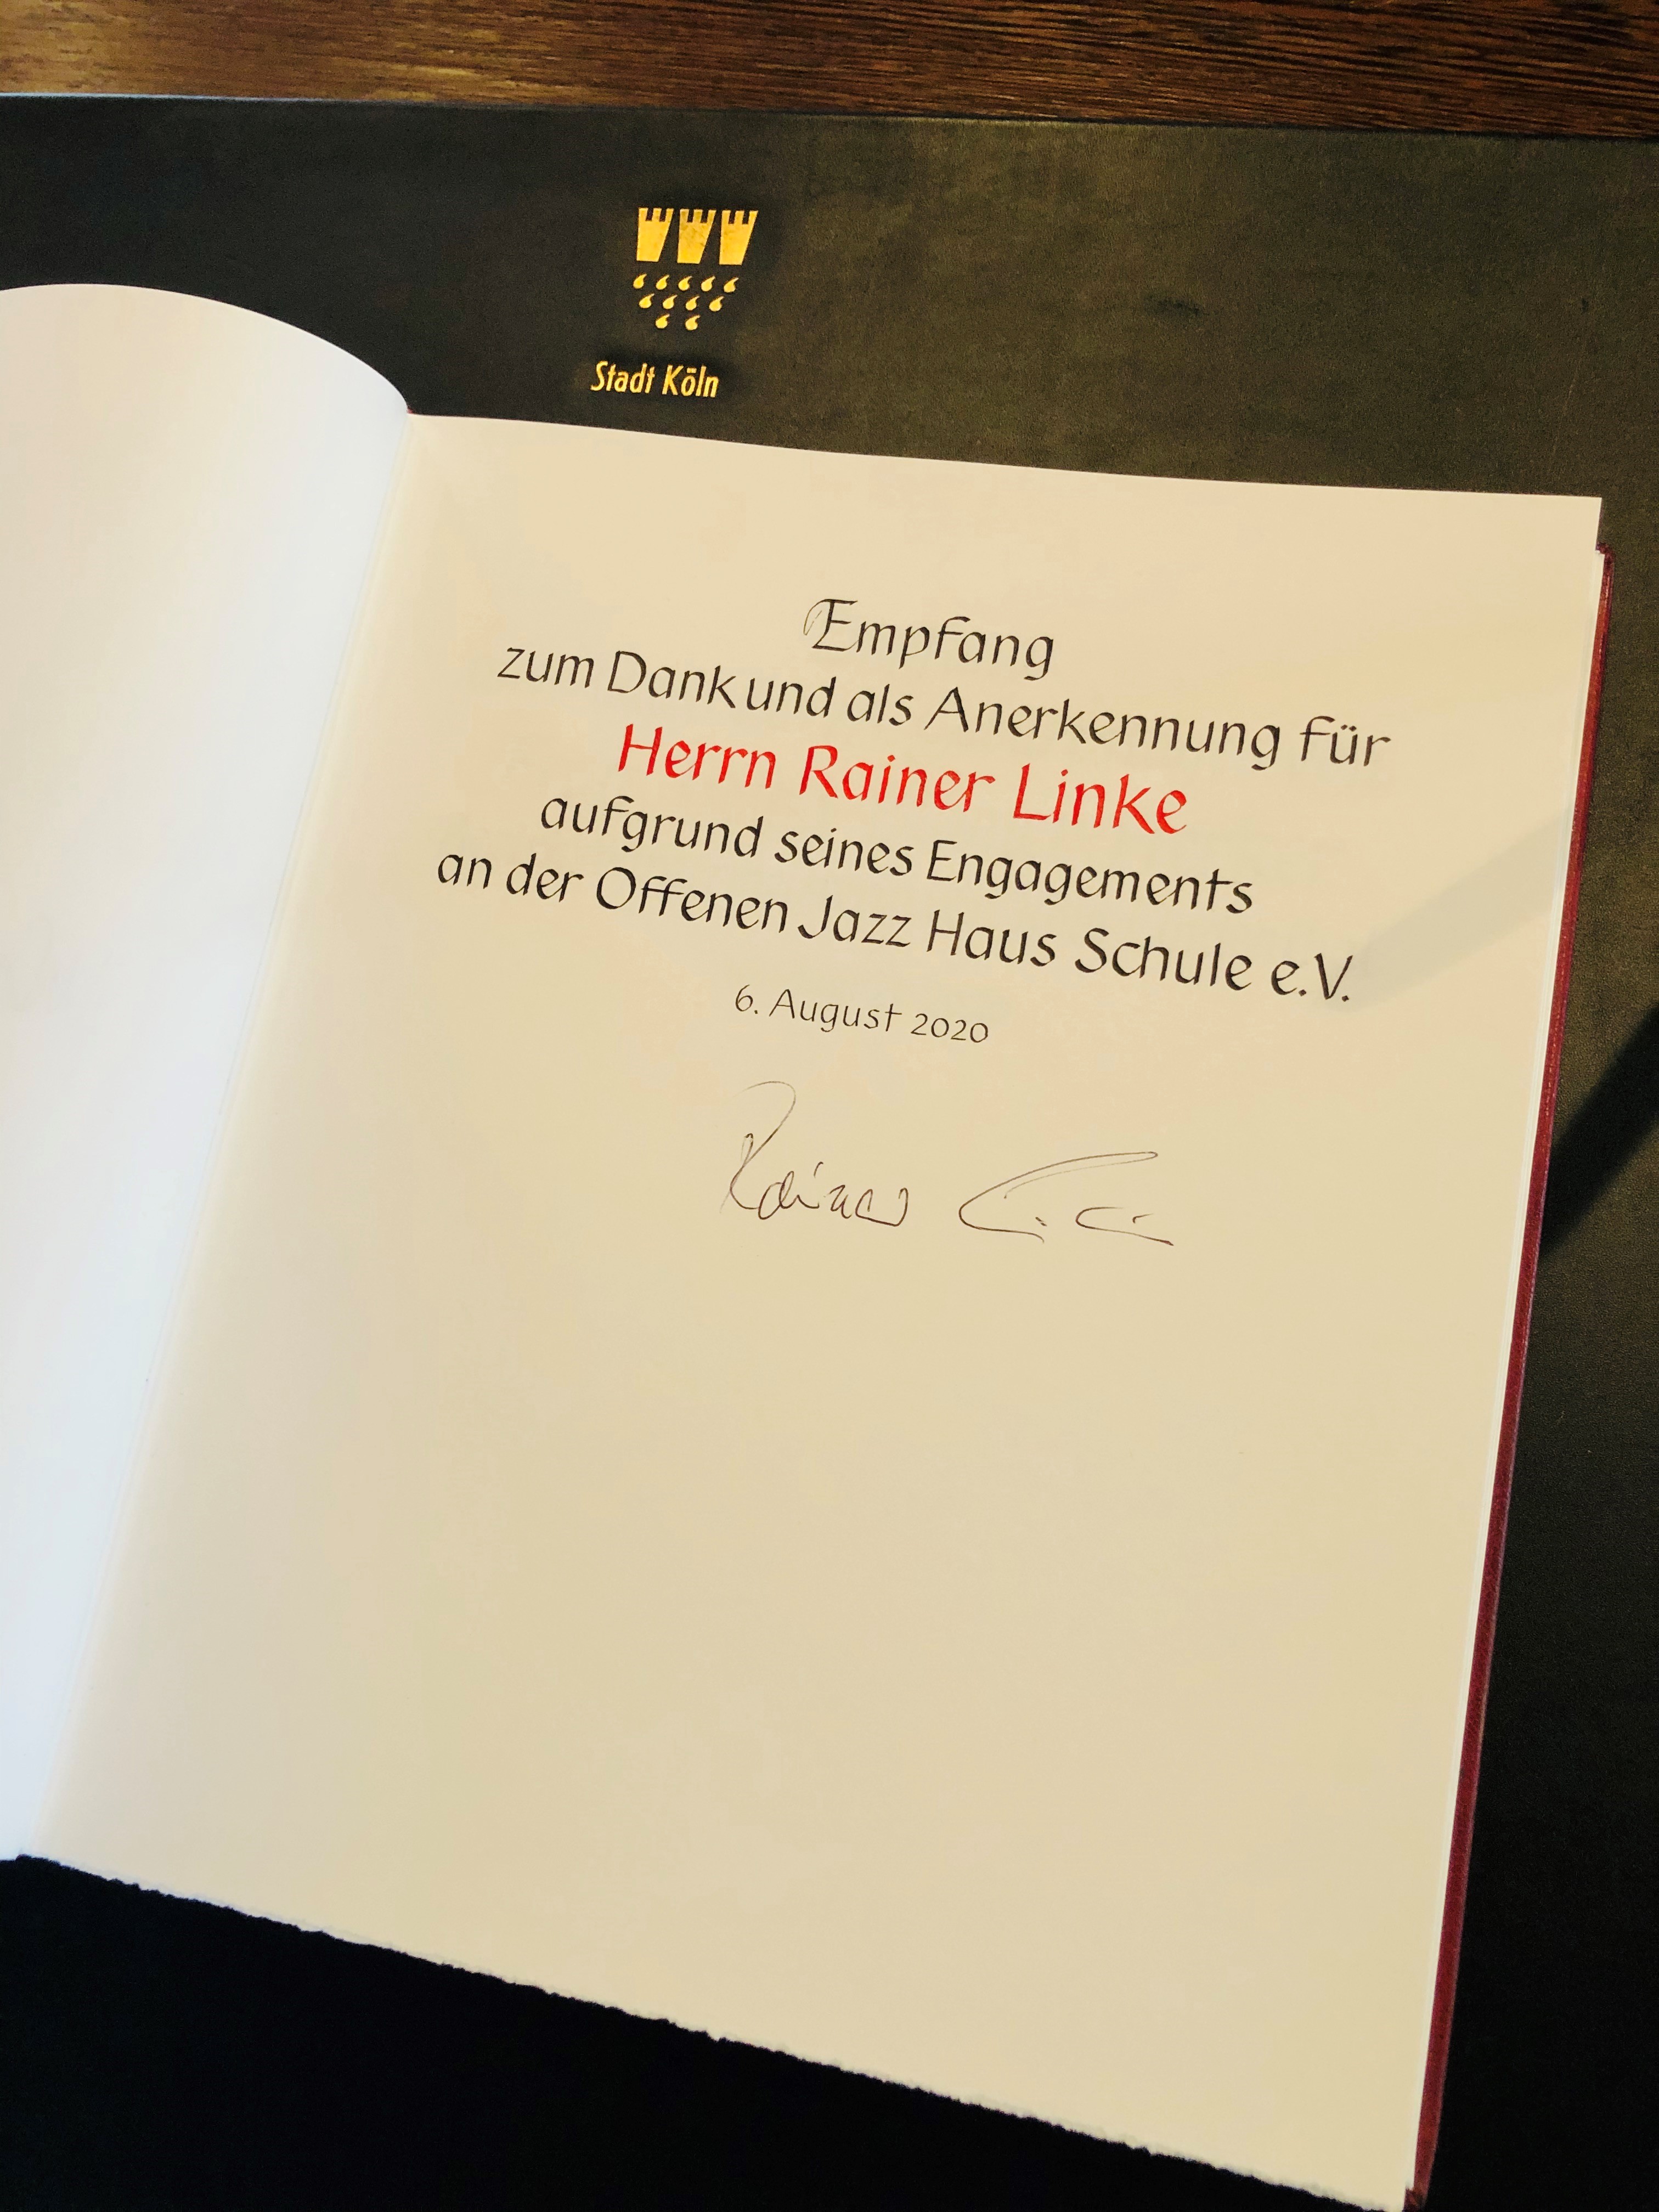 Stadt Köln
Empfang
zum Dank und als Anerkennung für
Herrn Rainer Linke
aufgrund seines Engagements
an der Offenen Jazz Haus Schule e.V.
6. August 2020
Rainer Linke